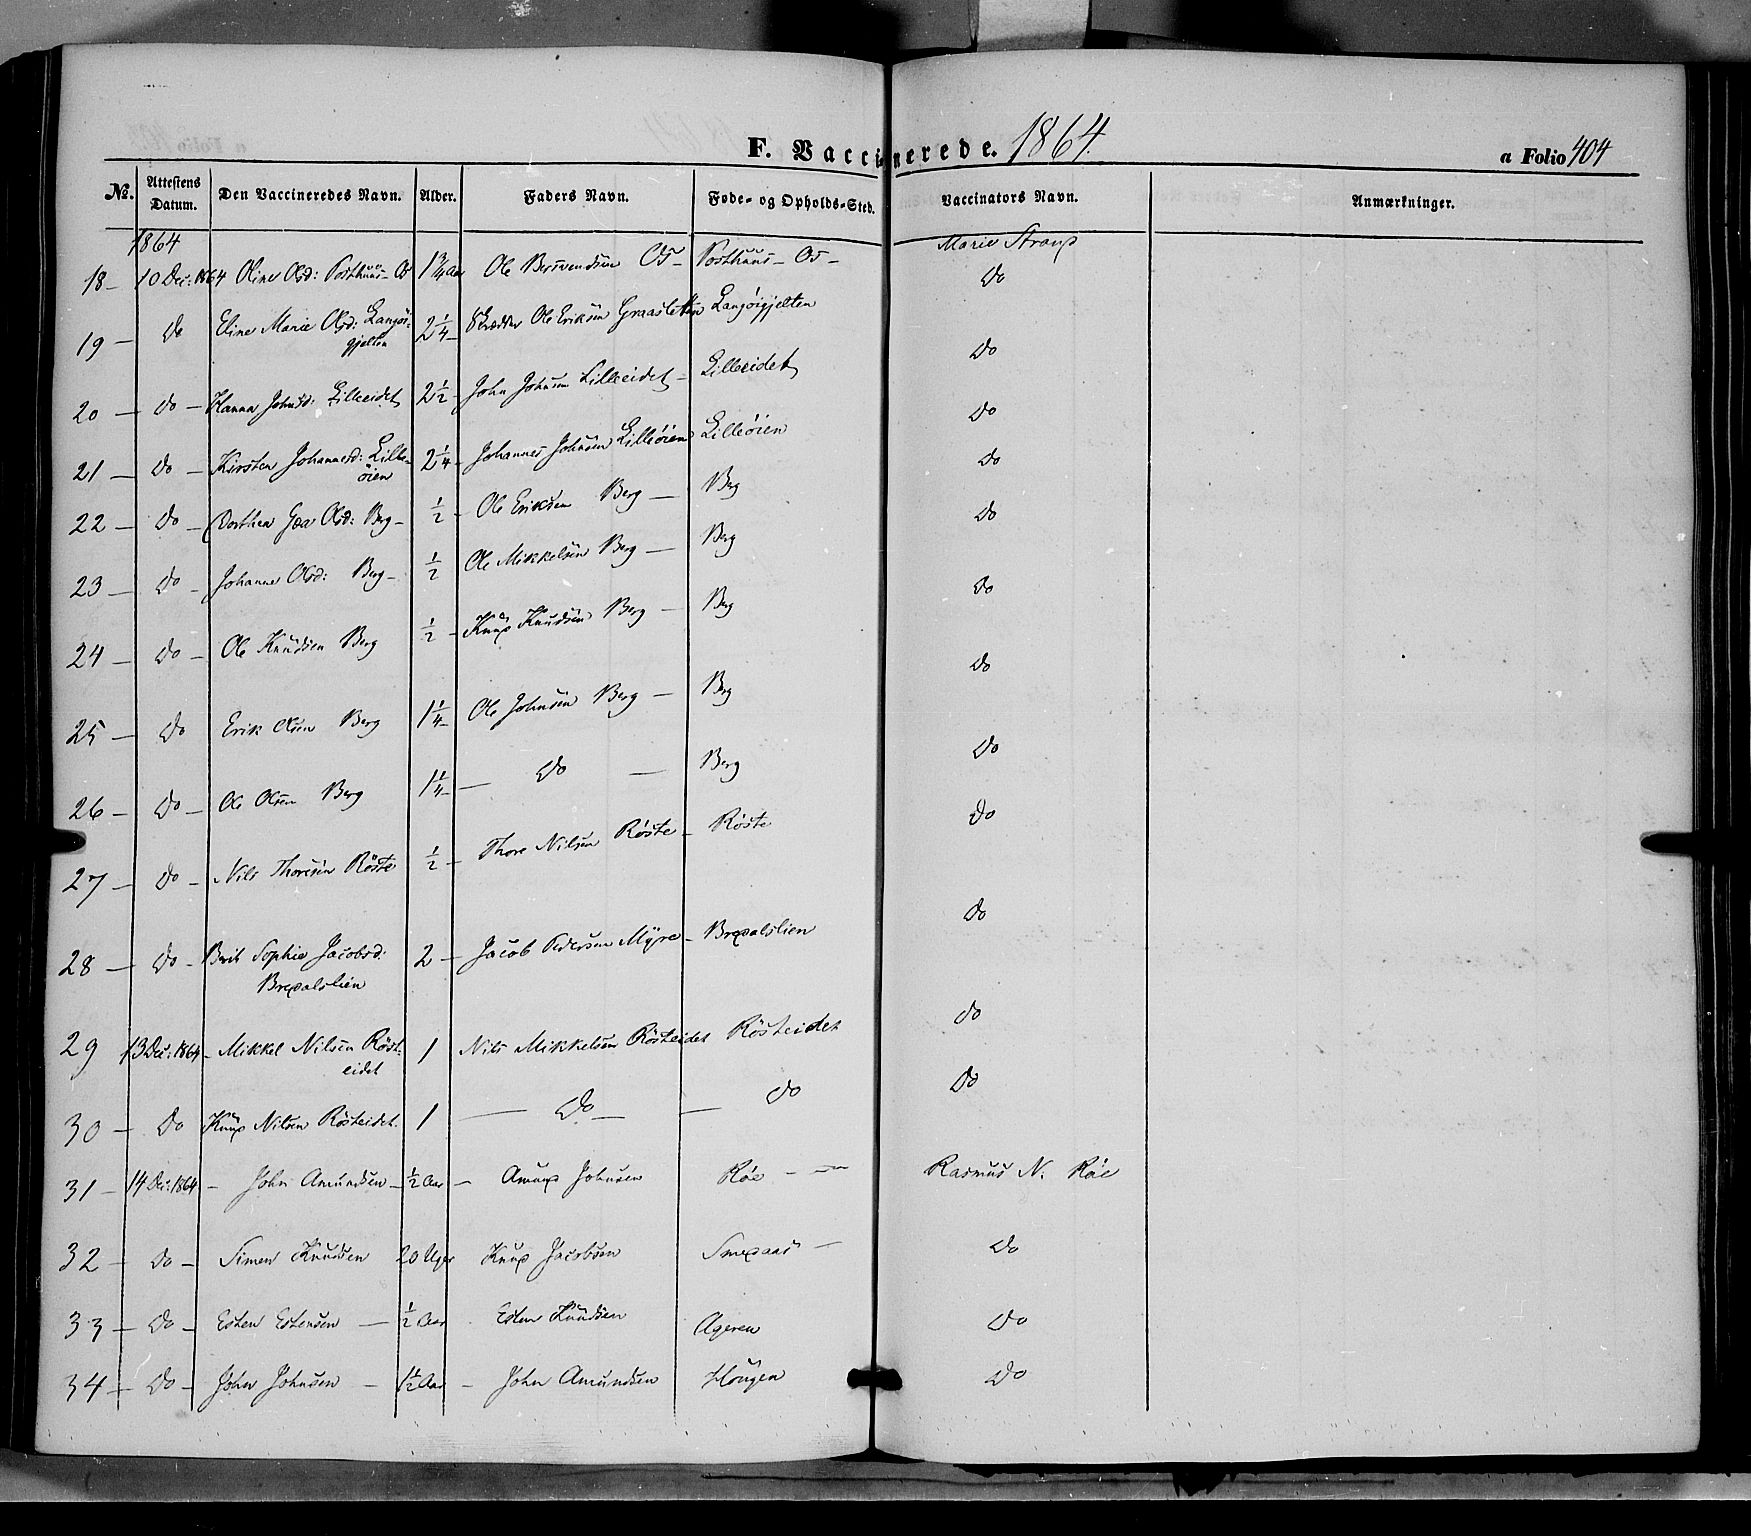 F. Vaccinerede. 1864.
a Folio 404
No. Attestens Datum. Den Vaccineredes Navn. Alder. Faders Navn. Føde- og Opholds-Sted. Vaccinators Navn. Anmærkninger.
1864
18 – 10 Dec: 1864 Oline Olsd: Posthuus – Os 1 3/4 Aar Ole Bersvendsen Os – Posthuus – Os – Marie Strøup
Do
19 – Do Eline Marie Olsd: Langøi-
gjelten 2 1/4 – Skrædder Ole Eriksen Graasletten Langøigjelten Do
20 – Do – Hanna Johnsd: Lilleeidet 2 1/2 – John Johnsen Lilleeidet – Lilleeidet Do
21 – Do – Kirsten Johannesd: Lille-
øien 2 1/4 – Johannes Johnsen Lilleøien Lilleøien Do
22 – Do – Dorthea Olsd: Berg – 1/2 – Ole Eriksen Berg – Berg Do
23 – Do – Johanne Olsd: Berg – 1/2 Ole Mikkelsen Berg – Berg Do
24 – Do – Ole Knudsen Berg 1/2 – Knud Knudsen Berg – Berg Do
25 – Do Erik Olsen Berg 1 1/4 – Ole Johnsen Berg – Berg Do
26 – Do – Ole Olsen Berg 1 1/4 – – Do – Berg Do
27 – Do – Nils Thoresen Röste 1/2 – Thore Nilsen Røste – Røste Do
28 – Do – Berit Sophie Jacobsd:
Bredalslien 2 – Jacob Pedersen Myre – Bredalslien Do
29 13 Dec: 1864 – Mikkel Nilsen Röst-
eidet 1 Nils Mikkelsen Rösteidet Rösteidet Do
30 – Do Knud Nilsen Rösteidet. 1 – Do – – Do Do
31 – 14 Dec: 1864 – John Amundsen – 1/2 Aar – Amund Johnsen Røe – – Rasmus N. Røe
32 – Do – Simen Knudsen 20 Uger Knud Jacobsen Smedaas – Do
33 – Do – Esten Estensen – 1/2 Aar Esten Knudsen Ageren Do
34 – Do – John Johnsen – 1 1/2 Aar – John Amundsen Hougen Do